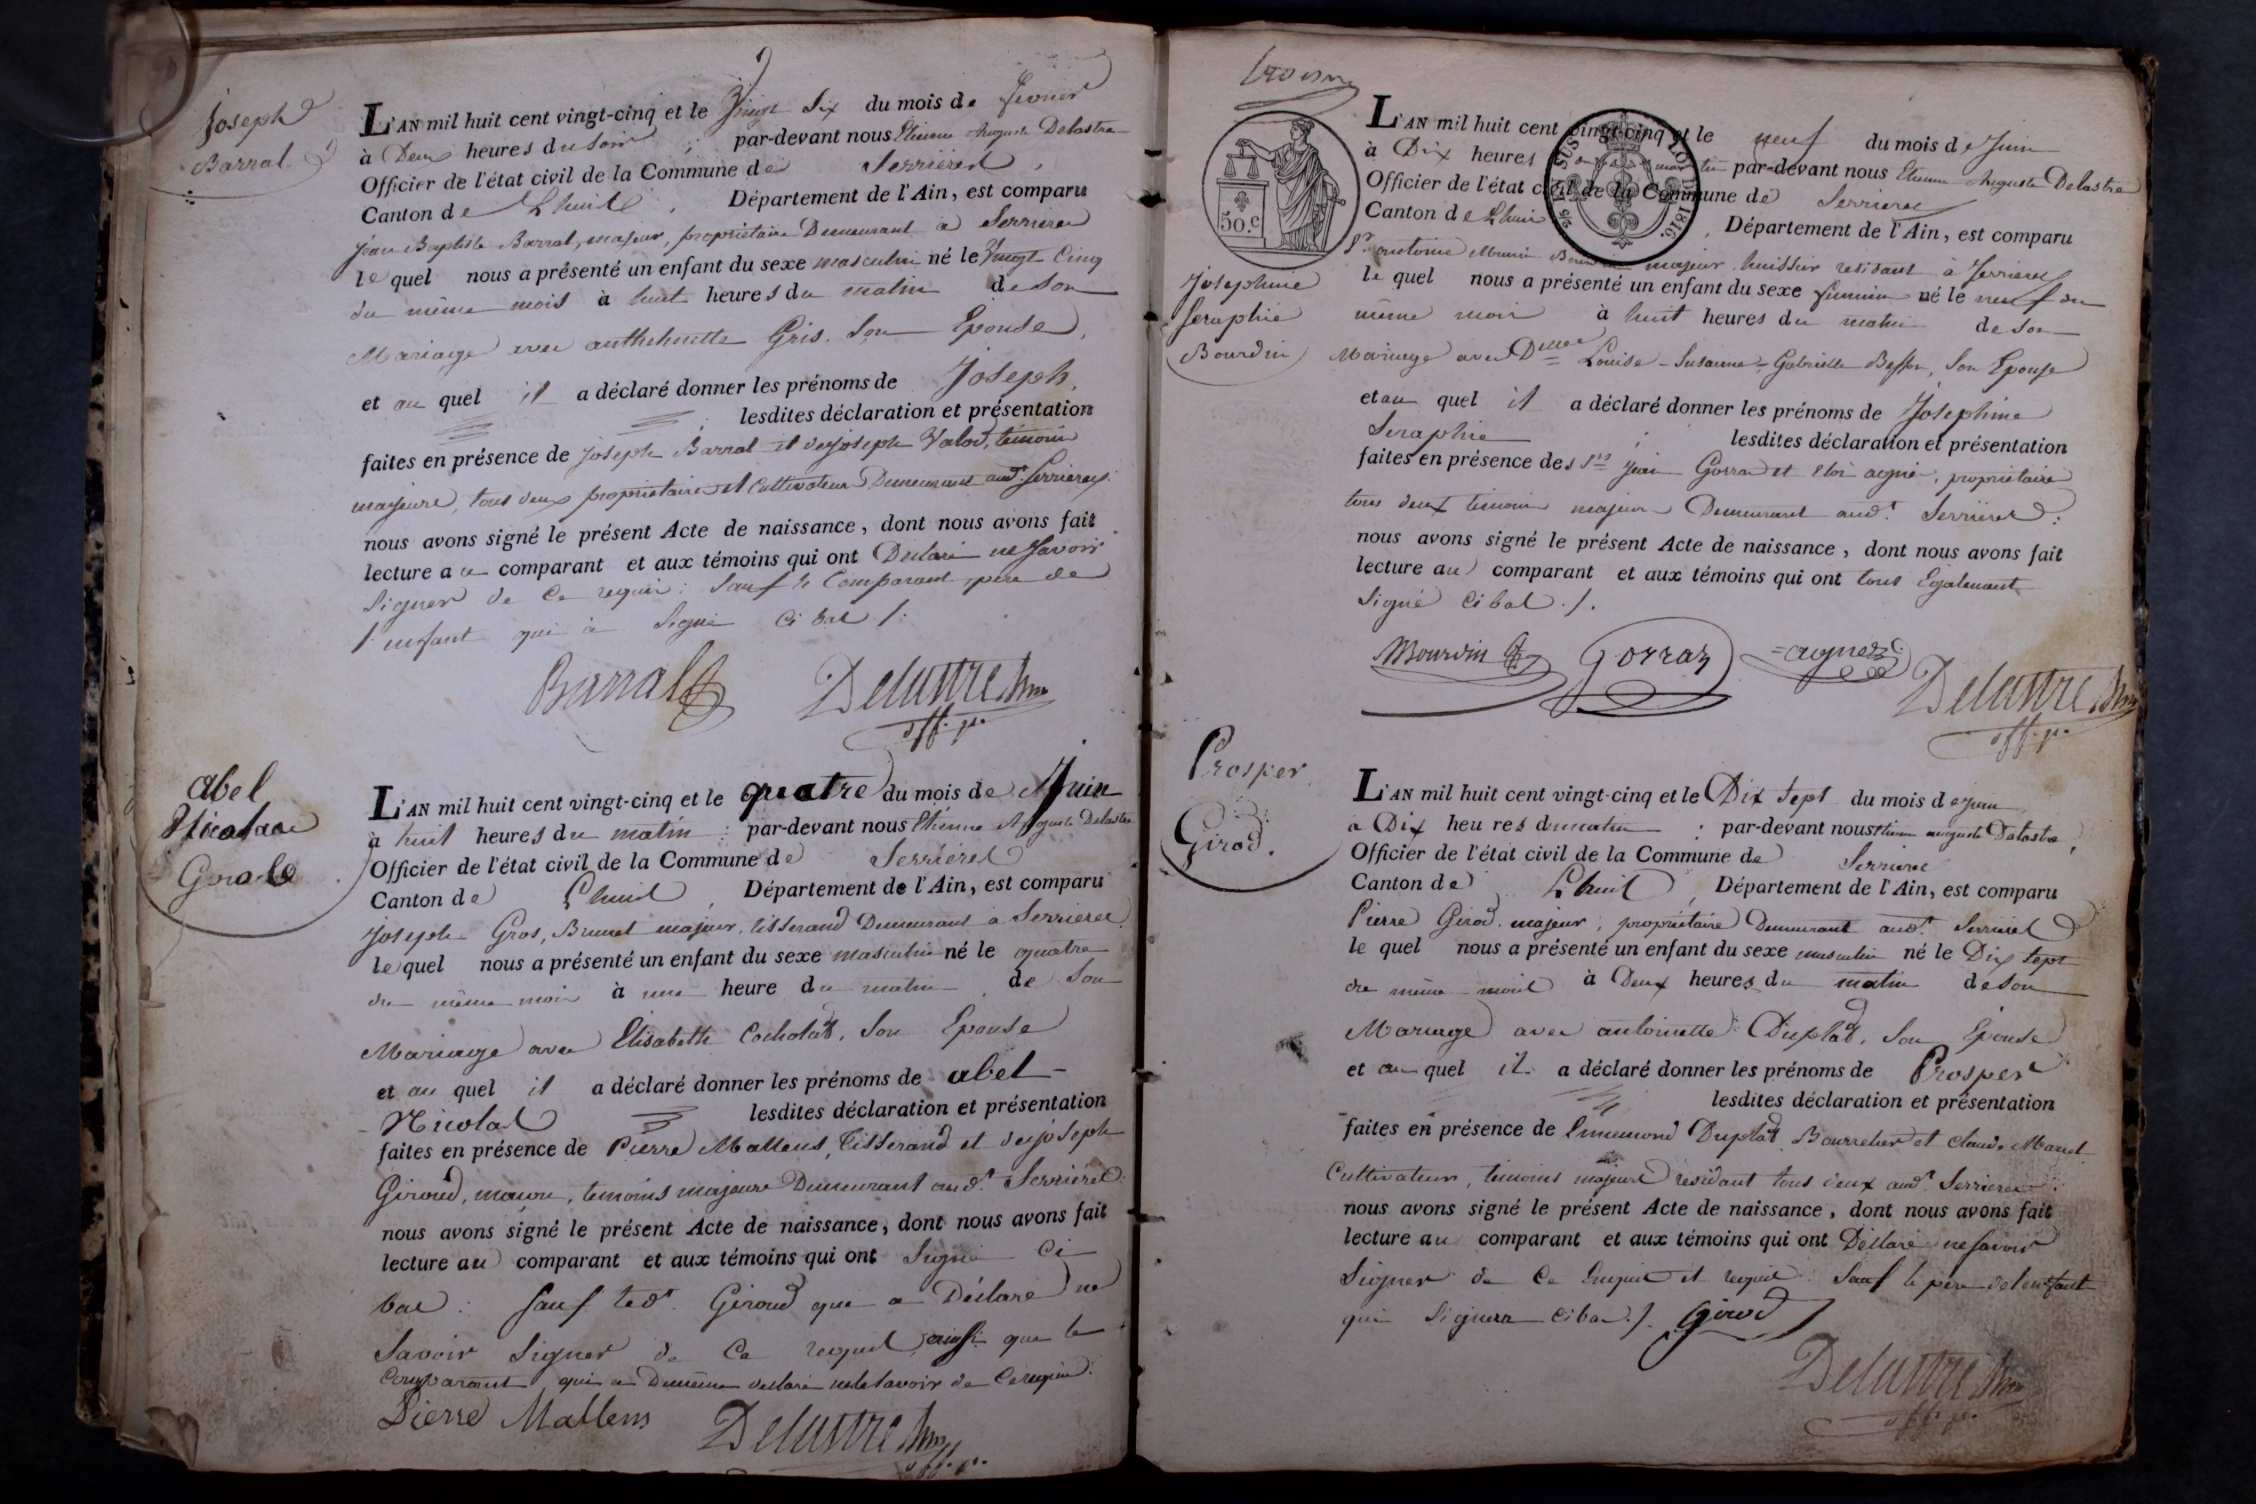 Joseph
Barral
L'AN mil huit cent vingt-cinq et le Vingt Six du mois de fevrier
à Deux heures du soir ; par-devant nous Etienne Auguste Delastre
Officier de l'état civil de la Commune de Serrieres ,
Canton de Lhuis , Département de l'Ain, est comparu
Jean Baptiste Barral, majeur, propriétaire Demeurant a Serrieres
lequel nous a présenté un enfant du sexe masculin né le Vingt Cinq
du même mois à huit heures du matin de son
Mariage avec Gris, Son Epouse,
et au quel il a déclaré donner les prénoms de Joseph,
; lesdites déclaration et présentation
faites en présence de Joseph Barral et de Joseph Valod, témoin
majeure, tous deux propriétaire et Cultivateur Demeurant aud.t Serrieres
nous avons signé le présent Acte de naissance, dont nous avons fait
lecture a ce comparant et aux témoins qui ont Déclaré ne Savoir
Signer de Ce requis : Sauf le Comparant père de
l'enfant qui à Signé Ci bas /.
Barral Delastre
off. p.
abel
Nicolas
L'AN mil huit cent vingt-cinq et le quatre du mois de Juin
à huit heures du matin ; par-devant nous Etienne Auguste Delastre
Officier de l'état civil de la Commune de Serrieres
Canton de Lhuis , Département de l'Ain, est comparu
Joseph Gros, Brunet majeur, tisserand Demeurant à Serrieres
lequel nous a présenté un enfant du sexe masculin né le quatre
du même mois à une heure du matin de Son
Mariage avec Elisabeth Cocholat, Son Epouse
et au quel il a déclaré donner les prénoms de abel
Nicolas lesdites déclaration et présentation
faites en présence de Pierre Mallens, Tisserand et de joseph
Giroud, maçon, temoins majeure Demeurant aud.t Serrieres
nous avons signé le présent Acte de naissance, dont nous avons fait
lecture au comparant et aux témoins qui ont Signé Ci
bas : Sauf led.t Giroud qui a Déclaré ne
Savoir Signer de Ce requis, ainsi que le
Comparant qui a Dememe déclaré nele savoir de Cerequis.
Pierre Mallens Delastre
off. p.
trois
L'AN mil huit cent vingt-cinq et le neuf du mois de Juin
à Dix heures du matin par-devant nous Etienne Auguste Delastre
Officier de l'état civil de la Commune de Serrieres
Canton de Lhuis , Département de l'Ain, est comparu
50.c
LOI DE 1816.
majeur huissier residant à Serrieres
Josephine
Seraphie
Bourdin
le quel nous a présenté un enfant du sexe feminin né le neuf du
même mois à huit heures du matin de son
Mariage avec Delle Louise-Susanne-Gabrielle Besson, Son Epouse
et au quel il a déclaré donner les prénoms de Josephine
Seraphie ; lesdites déclaration et présentation
faites en présence des Srs Jean Gorraz et Eloi agnié, propriétaire
tous deux temoin majeur Demeurant aud.t Serrieres :
nous avons signé le présent Acte de naissance, dont nous avons fait
lecture au comparant et aux témoins qui ont tous Egalement
Signé Ci bas ./.
Bourdin Gorraz Delastre
off. p.
Prosper
Girod.
L'AN mil huit cent vingt-cinq et le Dix Sept du mois de juin
à Dix heures du matin : par-devant nous Etienne auguste Delastre,
Officier de l'état civil de la Commune de Serrieres
Canton de Lhuis , Département de l'Ain, est comparu
Pierre Girod, majeur, propriétaire Demeurant aud.t Serrieres
le quel nous a présenté un enfant du sexe masculin né le Dix Sept
du même mois à Deux heures du matin de Son
Mariage avec antoinette Duplat, Son Epouse
et au quel il a déclaré donner les prénoms de Prosper
lesdites déclaration et présentation
faites en présence de Ennemond Duplat, Bourrelier et Claude
Cultivateur, temoins majeurs résidant tous deux aud.t Serrieres.
nous avons signé le présent Acte de naissance, dont nous avons fait
lecture au comparant et aux témoins qui ont Déclaré ne savoir
Signer de Ce Enquis et requis : Sauf le père de l'enfant
qui Signera ci bas ./. Girod
Delastre
off. p.